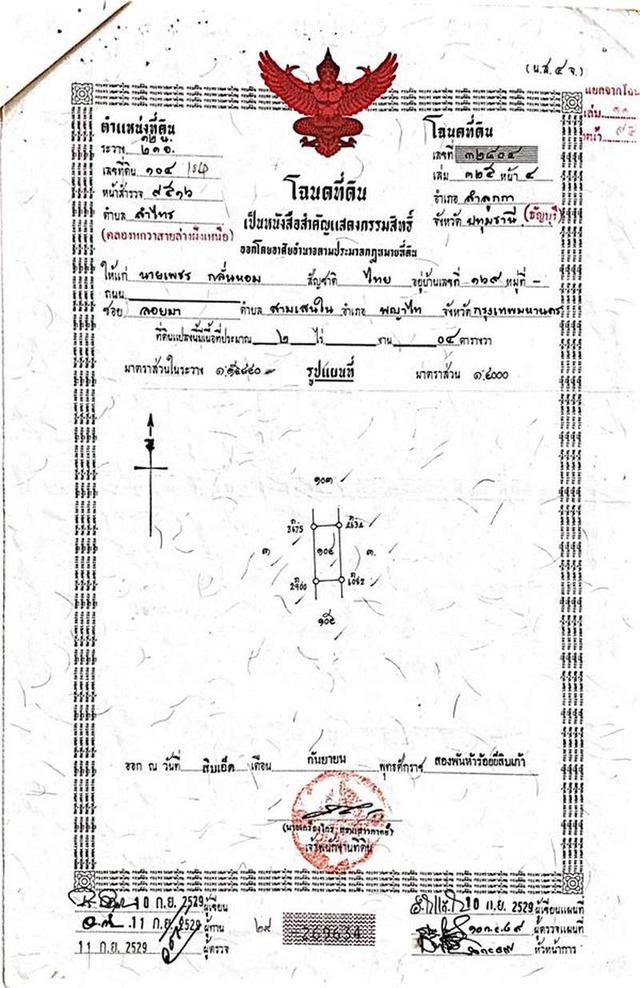 (น.ส.๔ จ.)
แยกจากโฉน
เล่ม
หน้า
ตำแหน่งที่ดิน
โฉนดที่ดิน
ระวาง
เลขที่ ๓๒๘๐๔
เลขที่ดิน ๑๐๔
เล่ม ๓๒๕ หน้า ๔
หน้าสำรวจ
อำเภอ ลำลูกกา
ตำบล ลำไทร
จังหวัด ปทุมธานี (ธัญบุรี)
(คลองหกวาสายล่างฝั่งเหนือ)
โฉนดที่ดิน
เป็นหนังสือสำคัญแสดงกรรมสิทธิ์
ออกโดยอาศัยอำนาจตามประมวลกฎหมายที่ดิน
ให้แก่ นายเพชร กลิ่นหอม สัญชาติ ไทย อยู่บ้านเลขที่ ๑๒๙ หมู่ที่ -
ถนน
ซอย ลอยมา ตำบล สามเสนใน อำเภอ พญาไท จังหวัด กรุงเทพมหานคร
ที่ดินแปลงนี้มีเนื้อที่ประมาณ ๒ ไร่ งาน ๐๔ ตารางวา
มาตราส่วนในระวาง รูปแผนที่ มาตราส่วน ๑:๔๐๐๐
๑๐๓
๓ ๑๐๔ ๓
๑๐๕
ออก ณ วันที่ สิบเอ็ด เดือน กันยายน พุทธศักราช สองพันห้าร้อยยี่สิบเก้า
เจ้าพนักงานที่ดิน
10 ก.ย. 2529 ผู้เขียน
10 ก.ย. 2529 ผู้เขียนแผนที่
11 ก.ย. 2529 ผู้ทาน
ผู้ตรวจแผนที่
11 ก.ย. 2529 ผู้ตรวจ
หัวหน้าการ
๒๙ 269634